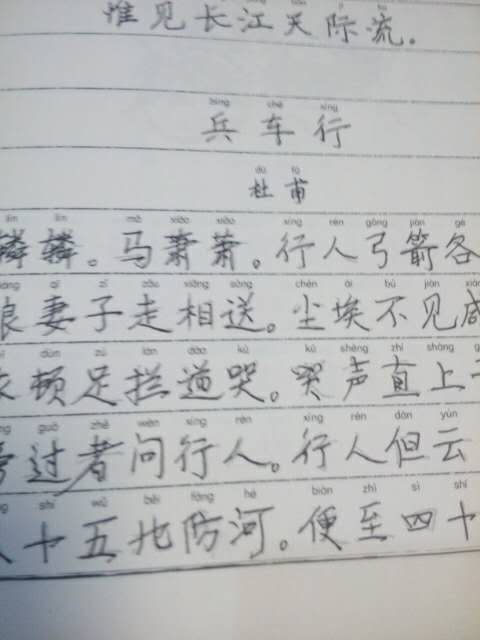 惟见长江天际流.
bīng chē xíng
兵车行
dù fǔ
杜甫
lín lín mǎ xiāo xiāo xíng rén gōng jiàn gè
辚辚。马萧萧。行人弓箭各
qī zǐ zǒu xiāng sòng chén āi bú jiàn
妻子走相送。尘埃不见咸
dùn zú lán dào kū kū shēng zhí shàng
顿足拦道哭。哭声直上
guò zhě wèn xíng rén xíng rén dàn yún
旁过者问行人。行人但云
shí wǔ běi fáng hé biàn zhì sì shí
十五北防河。便至四十